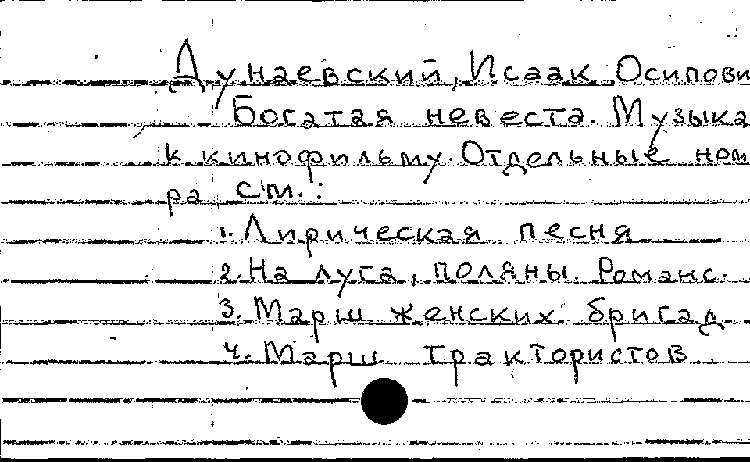 Дунаевский, Исаак Осипови
Богатая невеста. Музыка
к кинофильму. Отдельные ном
ра см.:
1. Лирическая песня
2. На луга, поляны. Романс.
3. Марш женских бригад
4. Марш трактористов